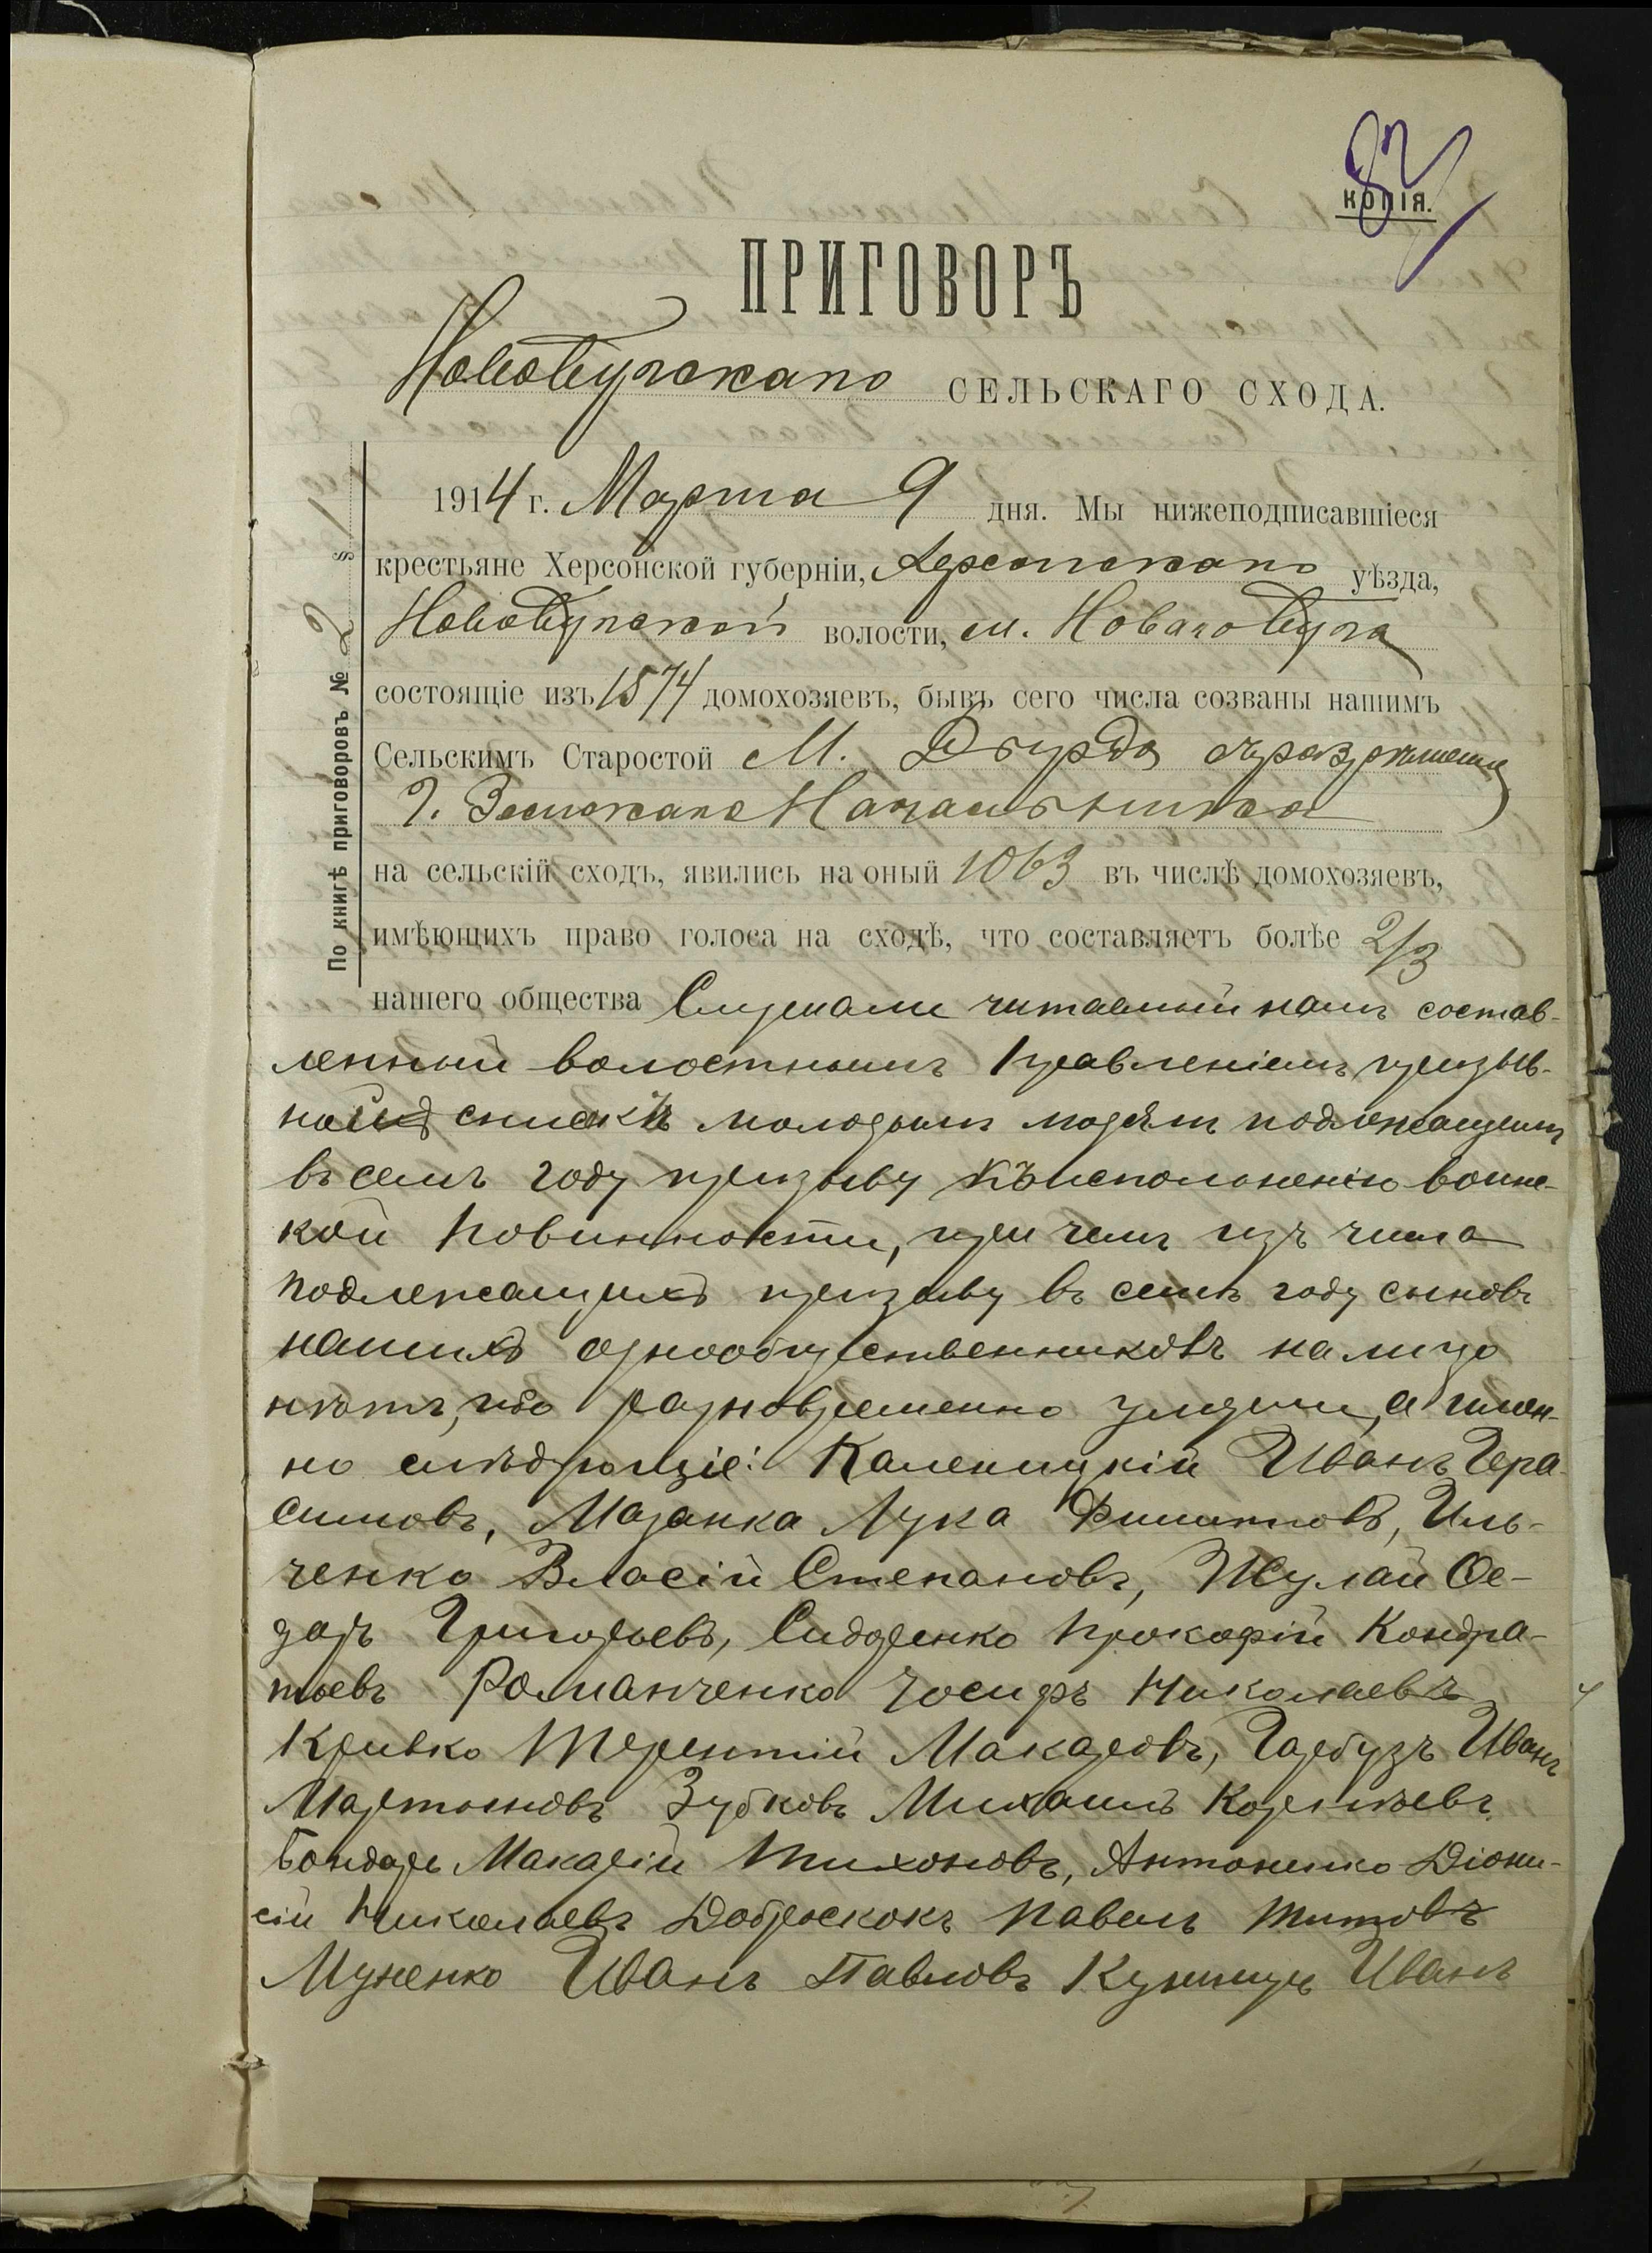 82
КОПІЯ.
ПРИГОВОРЪ
Новобугскаго СЕЛЬСКАГО СХОДА.
По книгѣ приговоровъ № 2 § 1
1914 г. Марта 9 дня. Мы нижеподписавшіеся
крестьяне Херсонской губерніи, Херсонскаго уѣзда,
Новобугской волости, м. Новаго Буга
состоящіе изъ 1574 домохозяевъ, бывъ сего числа созваны нашимъ
Сельскимъ Старостой М. съ разрѣшенія
Г. Земскаго Начальника
на сельскій сходъ, явились на оный 1063 въ числѣ домохозяевъ,
имѣющихъ право голоса на сходѣ, что составляетъ болѣе 2/3
нашего общества Слушали читанный намъ состав-
ленный волостнымъ Правленіемъ призыв-
ной списокъ молодымъ людямъ подлежащимъ
въ семъ году призыву къ исполненію воинс-
кой повинности, при чемъ изъ числа
подлежащихъ призыву въ семъ году сыновъ
нашихъ однообщественниковъ на лицо
нѣтъ, ибо разновременно умерли, а имен-
но слѣдующіе: Каленицкій Иванъ Гера-
симовъ, Мазанка Лука Филиповъ, Иль-
ченко Власій Степановъ, Жулай Ое-
доръ Григорьевъ, Сидоренко Прокофій Кондра-
тьевъ Романченко Іосифъ Николаевъ
Кривко Терентій Макаровъ, Гарбузъ Иванъ
Мартыновъ Зубковъ Михаилъ Корнѣевъ
Бондарь Макарій Тихоновъ, Антоненко Діони-
сій Николаевъ Доброскокъ Павелъ Титовъ
Муненко Иванъ Павловъ Куницъ Иванъ